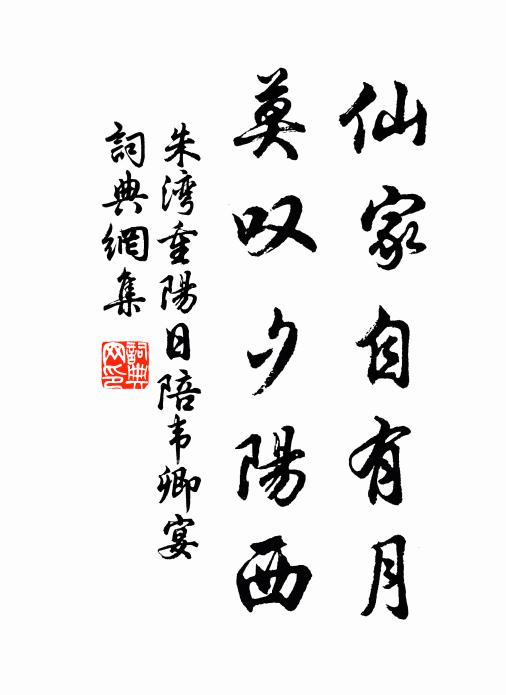 仙家自有月
莫叹夕陽西
朱湾重陽日陪韦卿宴
詞典網集
詞典网印